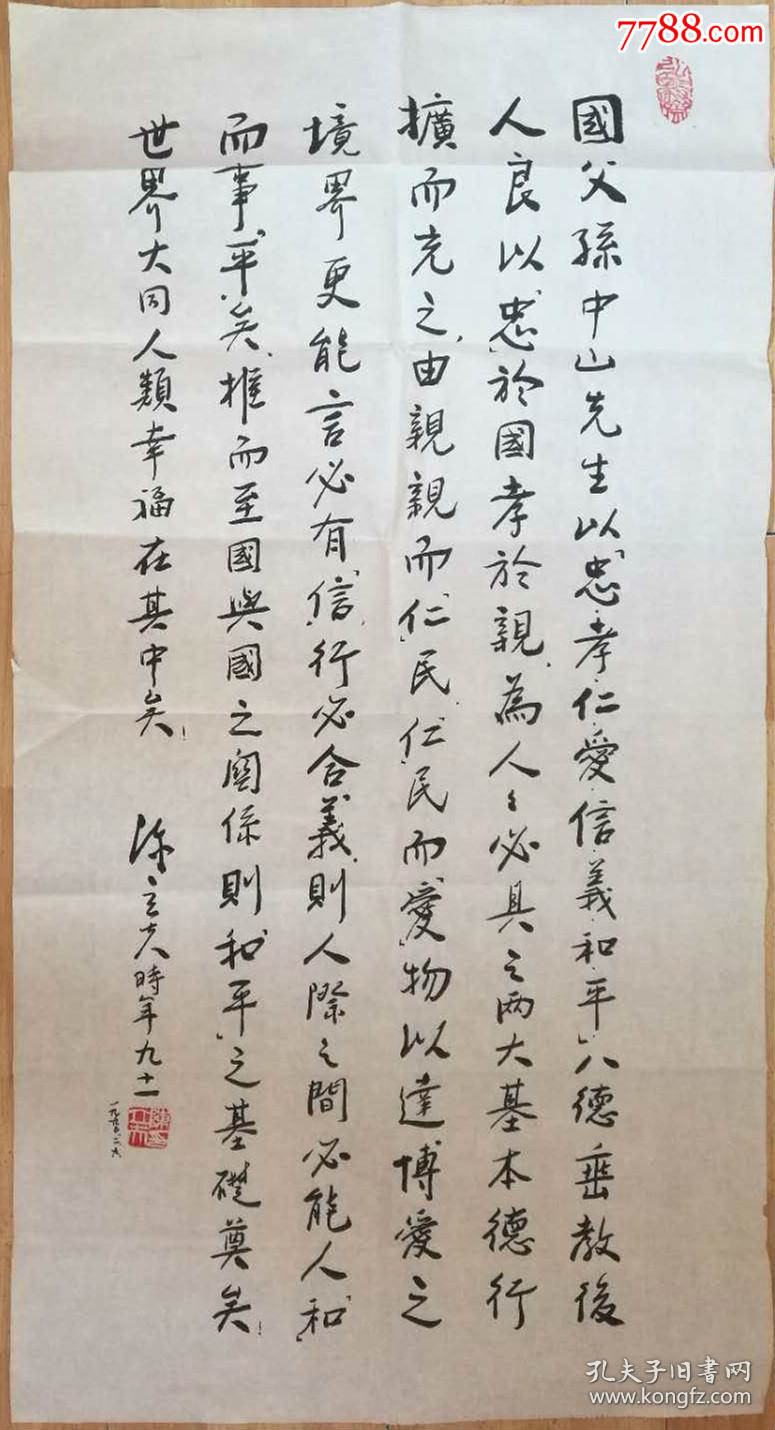 7788.com
國父孫中山先生以「忠·孝·仁·愛·信·義·和·平」八德垂教後
人良以「忠」於國「孝」於親、為人々必具之兩大基本德行
擴而充之，由親親而「仁」民、「仁」民而「愛」物以達博愛之
境界更能言必有「信」，行必合「義」，則人際之間必能人「和」
而事「平」矣、推而至國與國之關係則「和平」之基礎奠矣！
世界大同人類幸福在其中矣！
陳立夫時年九十一
一九九〇.二.六
孔夫子旧书网
www.kongfz.com